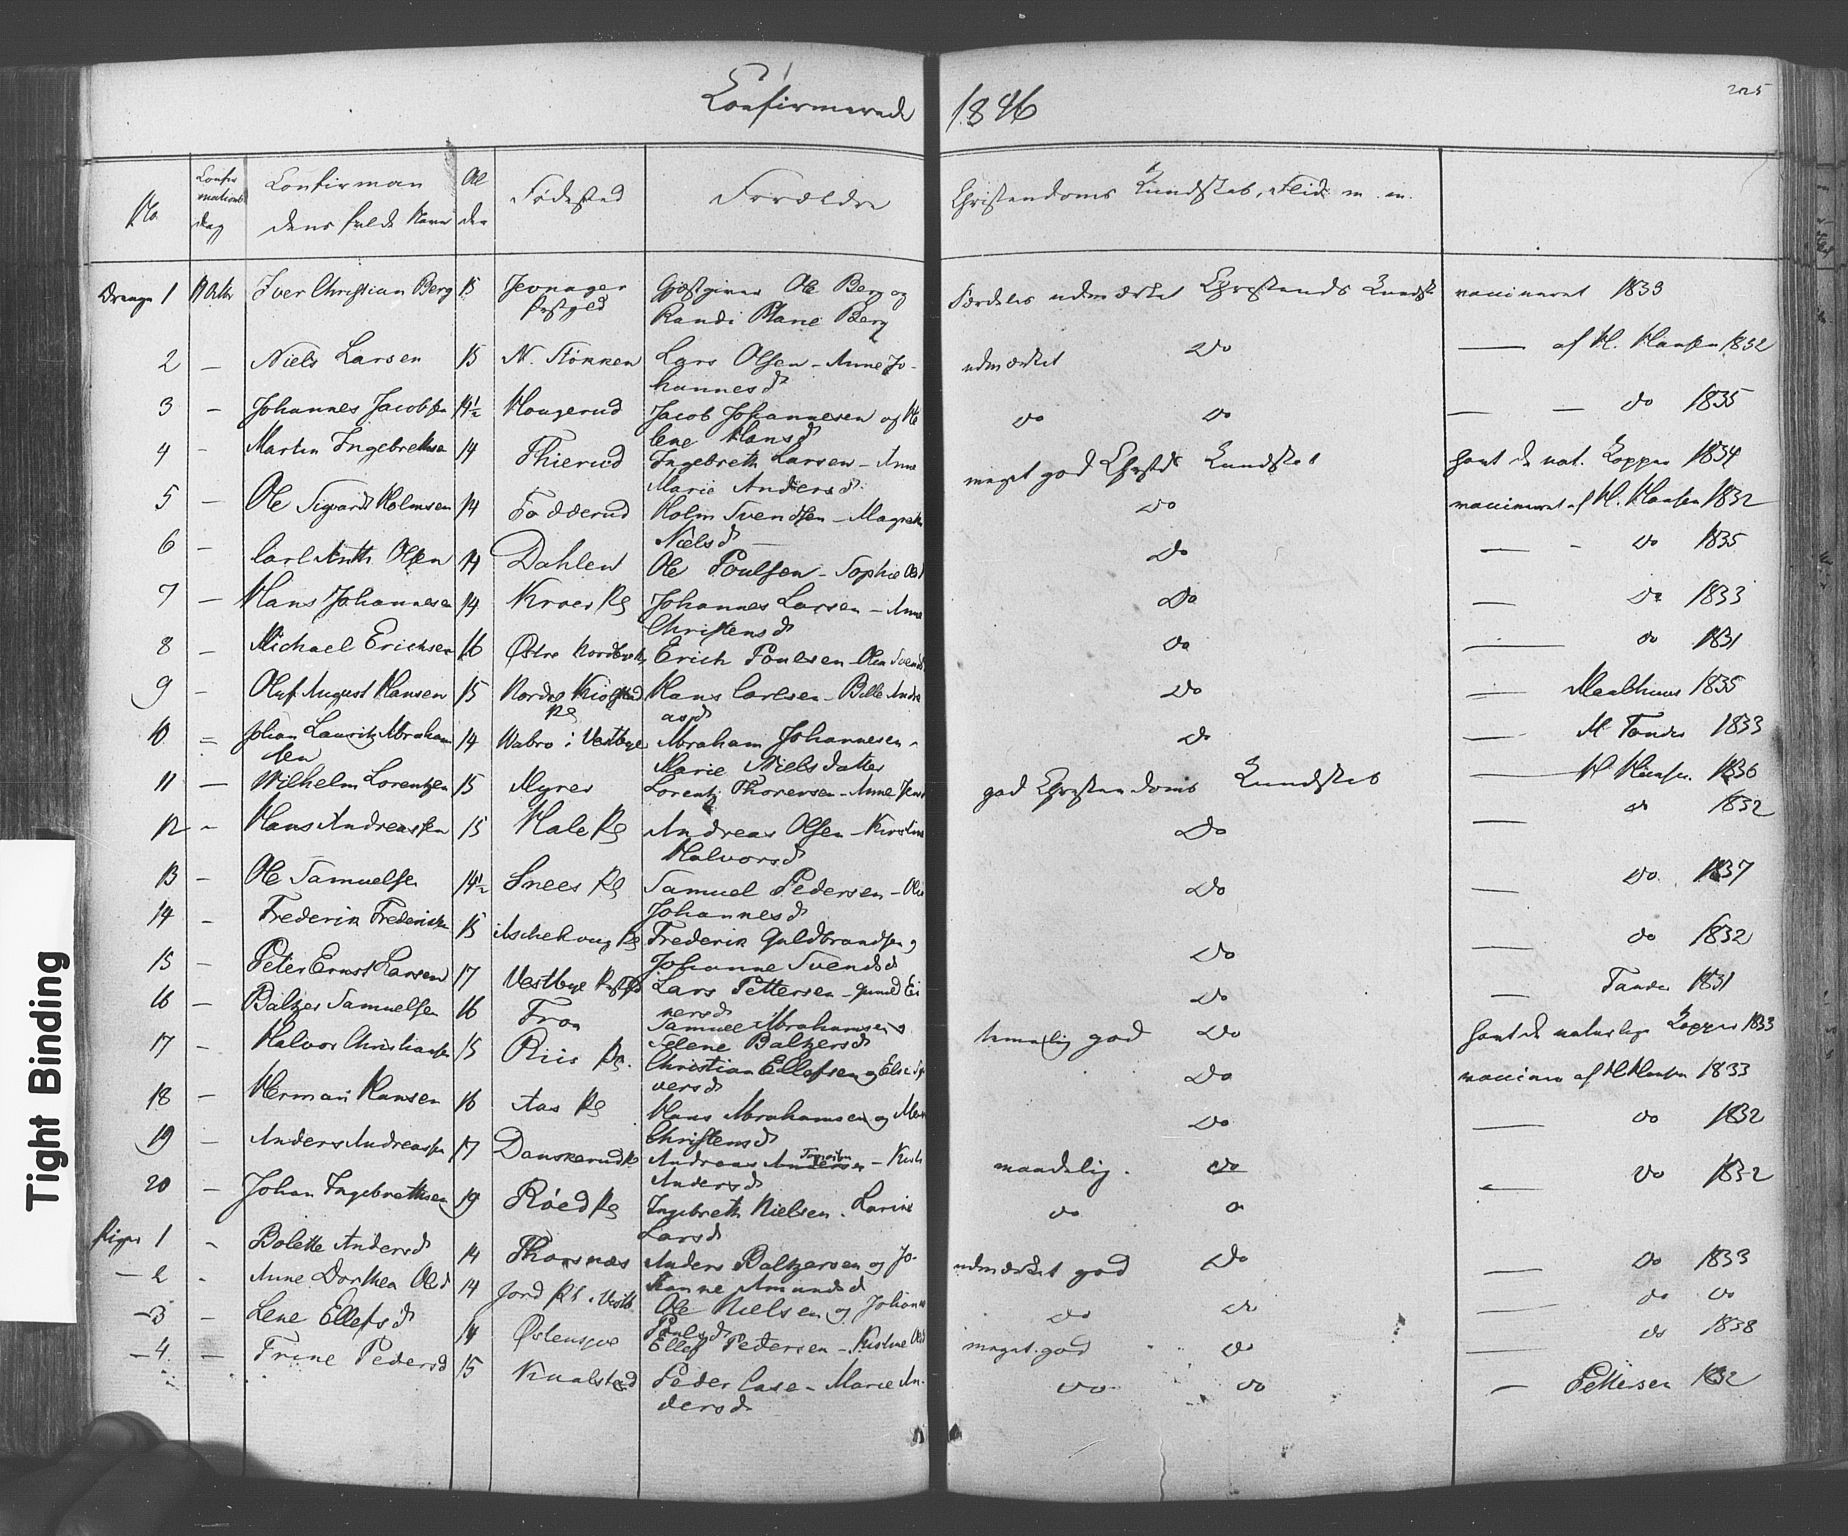 Confirmerede 1846
225
No.
Confirmations dag
Confirmandens fulde Navn
Alder
Fødested
Forældre
Christendoms Kundskab, Flid m.m.
Drenge 1 Iver Christian Berg 15 Jevnager Prstgjeld Gjæstgiver Ole Berg og Randi Marie Berg Særdeles udmærket Christends Kundsk vaccineret 1833
2 — Niels Larsen 15 N. Støkken Lars Olsen – Anne Johannesd udmærket Do — af H. Hansen 1832
3 — Johannes Jacobsen 14½ Hougerud Jacob Johannesen og Helene Hansd do do — — do 1835
4 — Martin Ingebrethsen 14 Thierud Ingebreth Larsen – Anne Marie Andersd. meget god Christds Kundskab havt de nat. Kopper 1834
5 — Ole Sigvardt Holmsen 14 Fadderud Holm Svendsen – Magrethe Nielsd do vaccineret af H. Hansen 1832
6 — Carl Anth Olsen 14 Dahlen Ole Poulsen – Sophie Olsd Do — – do 1835
7 — Hans Johannesen 14 Kroer Pg Johannes Larsen – Anne Christensd Do — Do 1833
8 — Michael Erichsen 16 Østre Nordbye Erich Poulsen – Olea Svendsd do — do 1831
9 — Oluf August Hansen 15 Nordre Kiolstad Pg Hans Carlsen – Bille Andreasd Do — Maalthuus 1835
10 = Johan Lauritz Abrahamsen 14 Wabro i Vestbye Abraham Johannesen – Marie Nielsdatter Do — M Tandes 1833
11 — Wilhelm Lorentzen 15 Myrer Lorentz Thoresen – Anne Jensd god Christendoms Kundskab — H Hansen 1836
12 – Hans Andreassen 15 Hale Pg Andreas Olsen – Kirstine Halvorsd Do — do 1832
13 — Ole Samuelsen 14½ Snees Pg Samuel Pedersen – Olea Johannesd Do — do 1837
14 – Frederik Frederiksen 15 Aschehoug Pg Frederik Guldbrandsen og Johanne Svendsd Do — do 1832
15 – Peter Ernst Larsen 17 Vestbye Lars Pettersen – Gunild Einersd Do — Tandes 1831
16 — Baltzer Samuelsen 16 Fron Samuel Abrahamsen & Helene Baltzersd temelig god Do havt de naturlige Kopper 1833
17 — Halvor Christiansen 15 Riis Pg. Christian Ellefsen og Else Syversd Do vaccine af H Hansen 1833
18 — Herman Hansen 16 Aas Pg Hans Abrahamsen og Christensd Do — do 1832
19 — Anders Andreassen 17 Danskerud Pg Andreas Andersen – Andersd maadelig. do — Do 1832
20 — Johan Ingebrethsen 19 Røed Pg Ingebreth Nielsen – Karine Larsd do do
Piger 1 – Bolette Andersd 14 Thorsnæs Anders Baltzersen og Johanne Amundsd udmærket god Do — Do 1833
– 2 – Anne Dorthea Olsd 14 Jord Pl. i Vestb Ole Nielsen og Johanne Poulsd do do — do do
– 3 – Lene Ellefsd 14 Østensjøe Ellef Pedersen – Kirstine Olsd meget god do — do 1838
– 4 — Trine Pedersd 15 Knalstad Peder Case – Marie Andersd do do — Pettersen 1832
Tight Binding